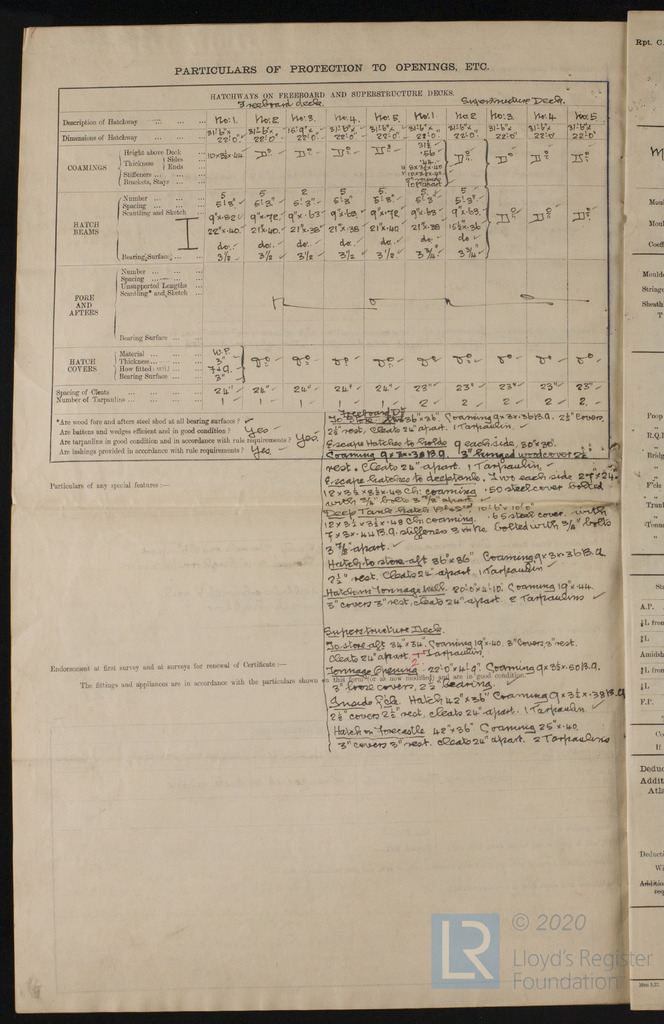 PARTICULARS OF PROTECTION TO OPENINGS, ETC.
HATCHWAYS ON FREEBOARD AND SUPERSTRUCTURE DECKS.
Freeboard deck. Superstructure Deck.
Description of Hatchway No. 1. No. 2 No. 3. No. 4. No. 5. No. 1. No 2 No. 3 No. 4 No. 5
Dimensions of Hatchway 31'.6" x 22'.0" 31'.6" x 22'.0" 16'.9" x 22'.0" 31'.6" x 22'.0" 31'.6" x 22'.0" 31'.6" x 22'.0" 31'.6" x 22'.0" 31'.6" x 22'.0" 31'.6" x 22'.0" 31'.6" x 22'.0"
COAMINGS
Height above Deck
Thickness Sides
Ends
Stiffeners
Brackets, Stays
10 x 3½ x .44 Do Do Do Do Do Do Do Do
HATCH BEAMS
Number 5 5 2 5 5 5 5
Spacing 5'.3" 5'.3" 5'.3" 5'.3" 5'.3" 5'.3" 5'.3"
Scantling and Sketch 9" x .52 9" x .72 9" x .63 9" x .63 9" x .72 9" x .63 9" x .63 Do Do Do
22" x .40 21" x .40 21" x .38 21" x .38 21" x .40 21" x .38
do. do. do. do. do. do. do.
Bearing Surface 3½ 3½ 3½ 3½ 3½ 3¾" 3¾"
FORE AND AFTERS
Number
Spacing
Unsupported Lengths
Scantling* and Sketch
Bearing Surface
HATCH COVERS
Material W.P.
Thickness 3" do do do do do do do do do
How fitted
Bearing Surface 3"
Spacing of Cleats 24" 24" 24" 24" 24" 23" 23" 23" 23" 23"
Number of Tarpaulins 1 1 1 1 1 2 2 2 2 2
*Are wood fore and afters steel shod at all bearing surfaces?
Are battens and wedges efficient and in good condition? Yes
Are tarpaulins in good condition and in accordance with rule requirements? Yes.
Are lashings provided in accordance with rule requirements? Yes
Freeboard Dk
To Store 36" x 36". Coaming 9 x 3 x .36 B.A. 2½" Covers
2½" rest. Cleats 24" apart. 1 Tarpaulin.
Escape Hatches to Holds 9 each side, 30" x 30".
Coaming 9 x 3 x .38 B.A. 3" hinged wood cover 2½
rest. Cleats 24" apart. 1 Tarpaulin
Particulars of any special features :—
Escape hatches to deeptank. Two each side 27" x 24"
12 x 3½ x 3½ x .48 Ch: coaming .50 steel cover bolted
with ¾" bolts 3⅞" apart
Deep Tank hatch 10'.6" x 10'.0"
12 x 3½ x 3½ x .48 Ch: coaming. .65 steel cover with
7 x 3 x .44 B.A. stiffeners bolted with ¾" bolts
3⅞" apart.
Hatch to store aft 36" x 36" Coaming 9 x 3 x .36 B.A.
2½" rest. Cleats 24" apart. 1 Tarpaulin
Hatch in Tonnage well. 20'.0" x 4'.10". Coaming 19" x .44.
3" covers 3" rest, cleats 24" apart. 2 Tarpaulins
Superstructure Deck.
To store aft 34" x 34". Coaming 19" x .40. 3" Covers, 3" rest.
Cleats 24" apart. 2 Tarpaulin
Endorsement at first survey and at surveys for renewal of Certificate :—
Tonnage Opening. 22'.0" x 4'.9". Coaming 9 x 3½ x .50 B.A.
The fittings and appliances are in accordance with the particulars shown on this form (or as now modified) and are in good condition.
3" loose covers, 2½ bearing.
Inside F'cle. Hatch 42" x 36" Coaming 9 x 3½ x .38 B.A
2½" covers 2½" rest, cleats 24" apart. 1 Tarpaulin
Hatch on Forecastle 42" x 36" Coaming 25" x .40.
3" covers 3" rest. cleats 24" apart. 2 Tarpaulins
Rpt. C.
Moul
Moul
Coeff
Moulde
Stringe
Sheath
T
Poop
R.Q.D
Bridg
F'cle
Trunk
Tonne
A.P.
¼L from
⅓L fro
Amidsh
⅓L from
¼L from
F.P.
Co
If
Deduc
Addit
Atla
Deducti
Wi
Additio
req
LR
© 2020
Lloyd's Register
Foundation